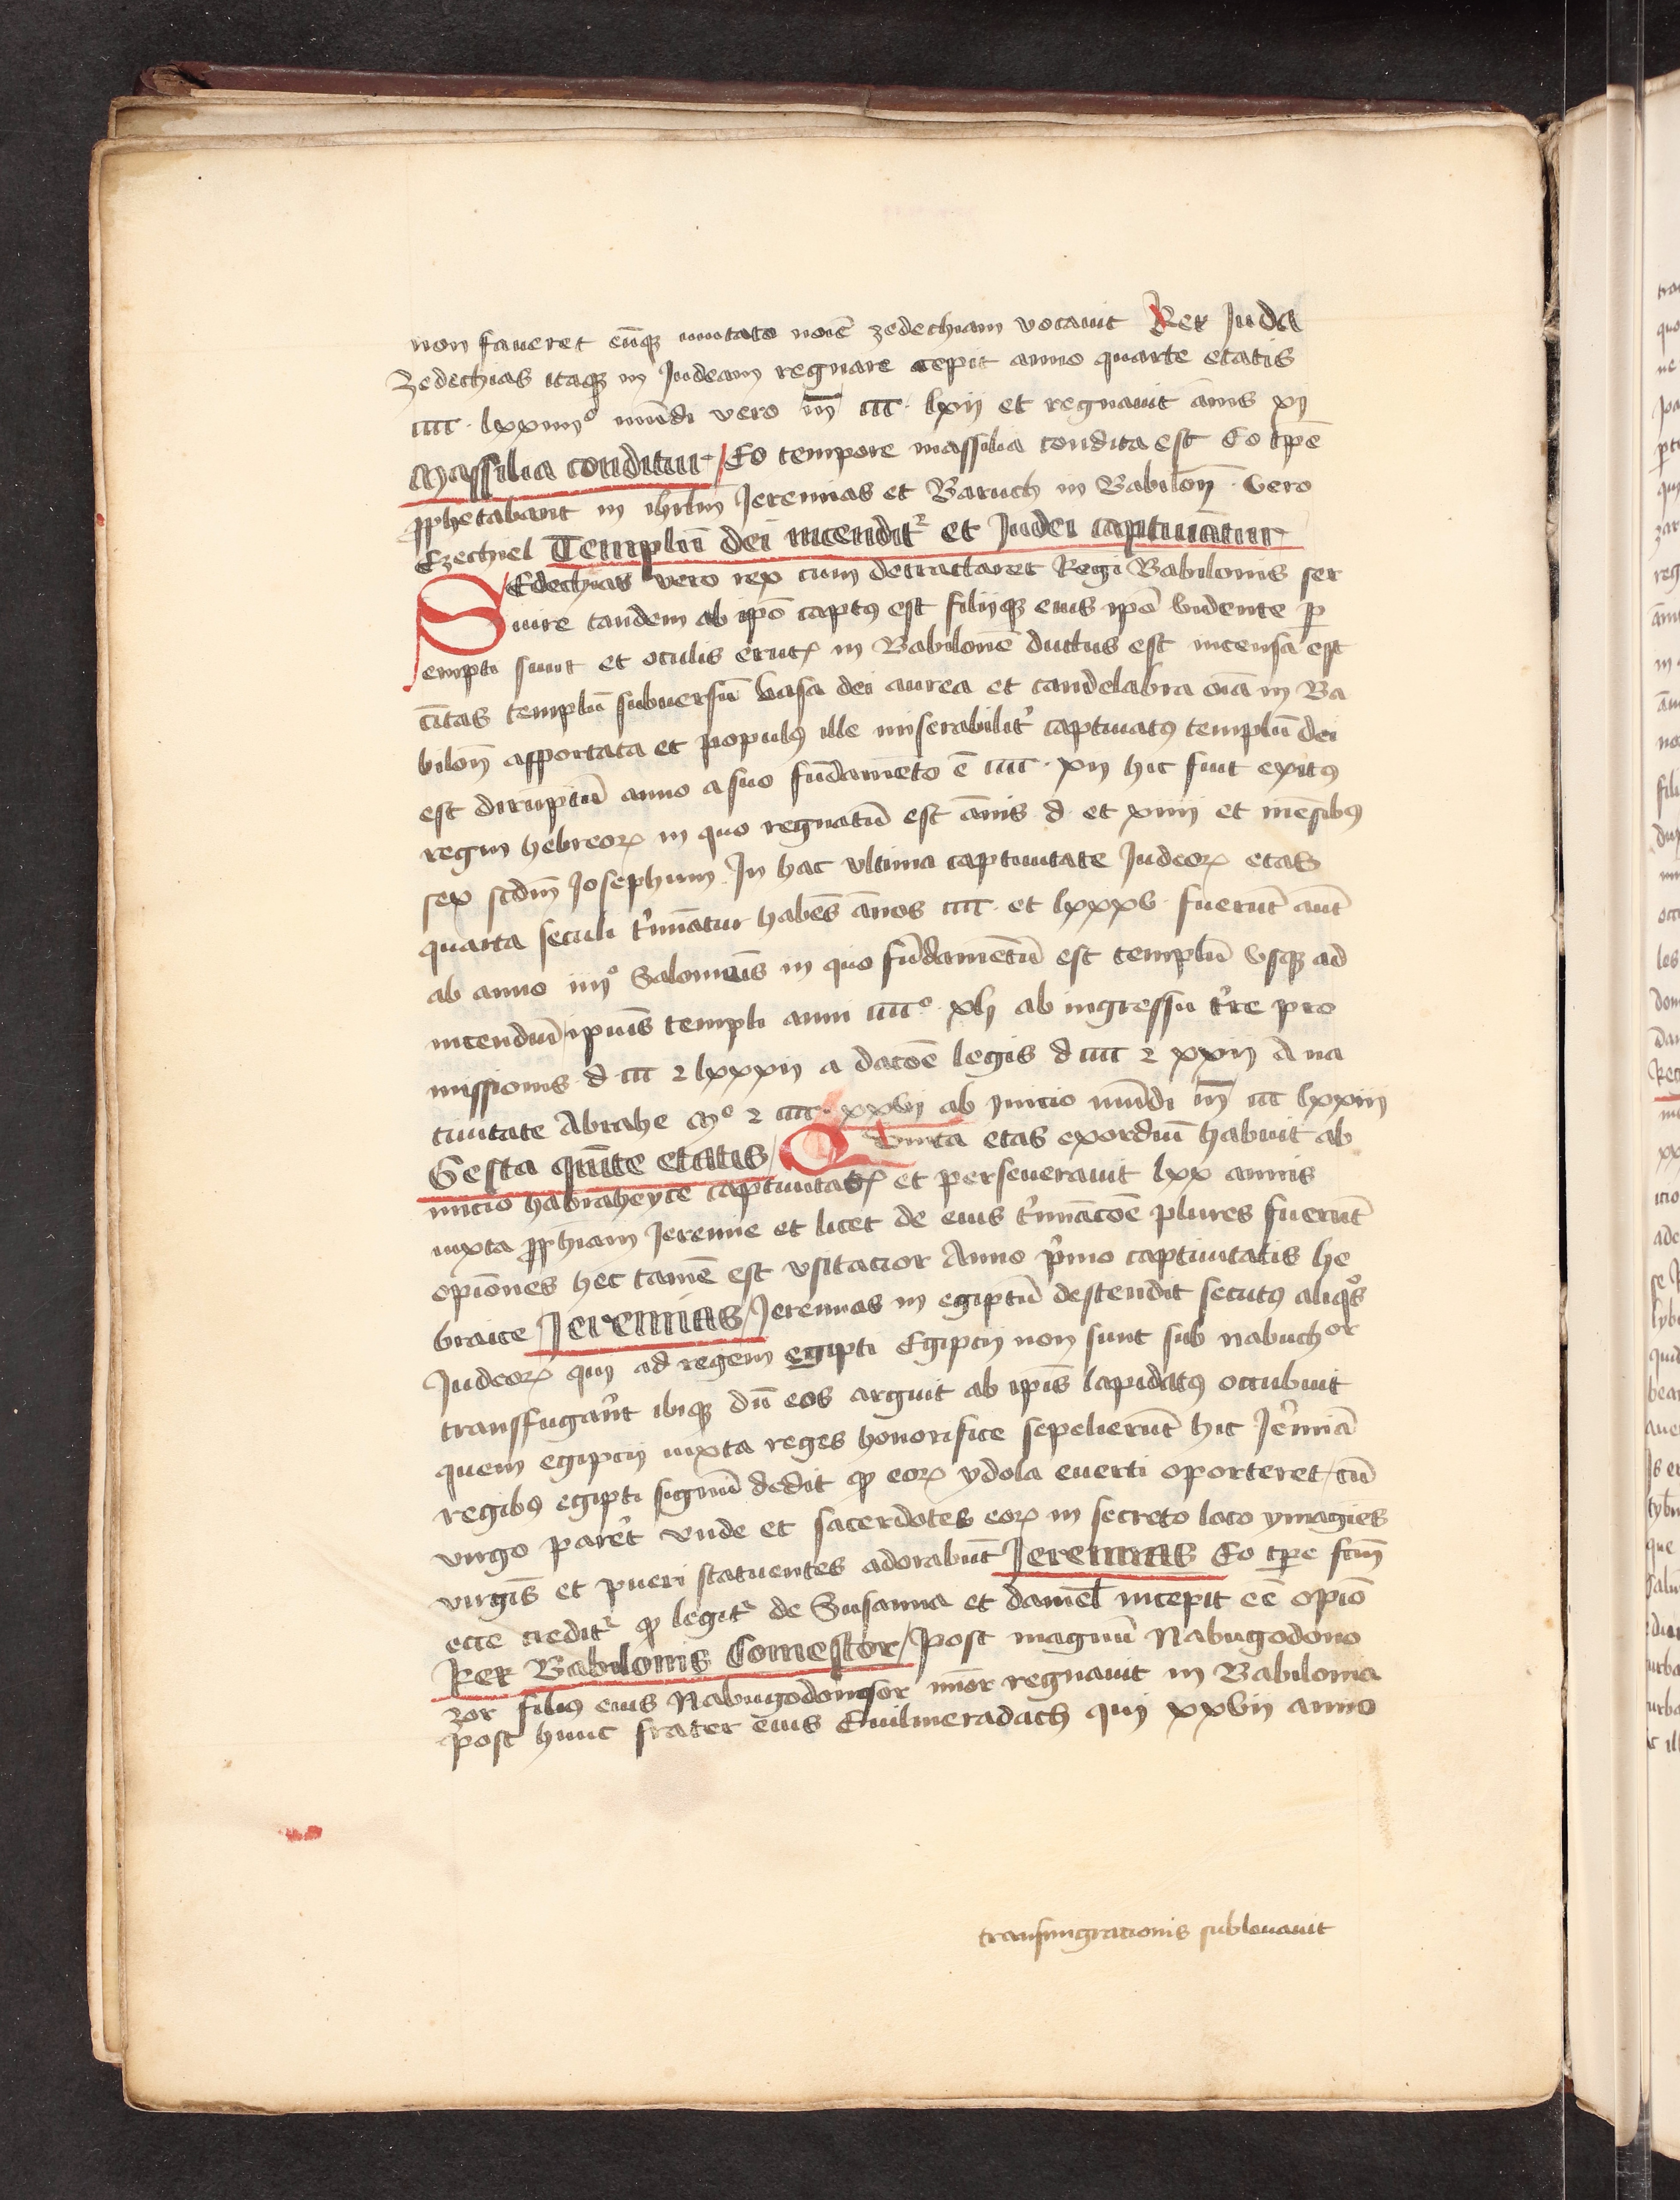 non faueret eūq; mutato noīe zedechiam vocauit Rex Juda
Zedechias itaq; in Judeam regnare cepit anno quarte etatis
cccc · lxxiiiiº mūdi vero m̄ cccc · lxij et regnauit ānis xj
Massilia conditur / Eo tempore massilia condita est Eo tpē
ꝓphetabant in ihrl̄m Jeremias et Baruch in Babilon̄ · vero
Ezechiel Templū dei incendit² et Judei captiuātur
Sedechias vero rex cum detractaret Regi Babilonis ser
uire tandem ab ipō captꝰ est filijq; eius ipō vidente ꝑ
empti sunt et oculis erutꝭ in Babilonē ductus est incensa est
cītas templū subuersū vasa dei aurea et candelabra oīa in Ba
bilon̄ asportata et populꝰ ille miserabilit̉ captiuatꝰ templū dei
est diruptū anno a suo fūdamēto ē cccc · xij hic fuit exitꝰ
regin hebreoꝝ in quo regnatū est ānis · d · et xiiij et mēsibꝰ
sex scdm̄ Josephum In hac vltima captiuitate Judeoꝝ etas
quarta seculi t̉minatur habēs ānos cccc · et lxxxv · fuerūt aūt
ab anno iiijº Salomōis in quo fūdamētū est templū vsq; ad
incendiū ipīus templi anni ccccº · xlj ab ingressu t̉re pro
missionis · d · ccc ⁊ lxxxij a datōe legis d cccc ⁊ xxij A na
tiuitate Abrahe Mº ⁊ cccc · xxvij ab inicio mūdi m̄ ccc lxxiij
Gesta quīte etatis / Quinta etas exordiū habuit ab
inicio habraheyce captiuitatꝭ et perseuerauit lxx annis
iuxta ꝓph̄iam Jeremie et licet de eius t̉minacōe plures fuerūt
opiōnes hec tamē est vsitacior Anno p̉mo captiuitatis he
braice Jeremias / Jeremias in egiptū descendit secutꝰ aliqͦs
Judeoꝝ qui ad regem egipti Egiptij non sunt sub nabuchor
transfugar̄t ibiq; dū eos arguit ab ipīs lapidatꝰ occubuit
quem egiptij iuxta reges honorifice sepelierūt hic Jer̉miā
regibꝰ egipti signū dedit ꝙ eoꝝ ydola euerti oporteret / cū
virgo par̉et vnde et sacerdotes eoꝝ in secreto loco ymagīes
virgīs et pueri statuentes adorabūt Jeremias Eo tꝑe scdm̄
ecce credit² ꝙ legit² de Susanna et daniel̄ incepit eē opiō
Rex Babilonis Comestor / Post magnū Nabugodono
zor filiꝰ eius Nabugodonosor mīor regnauit in Babilonia
post hunc frater eius Euilmeradach qui xxvij anno
transmigracionis subleuauit